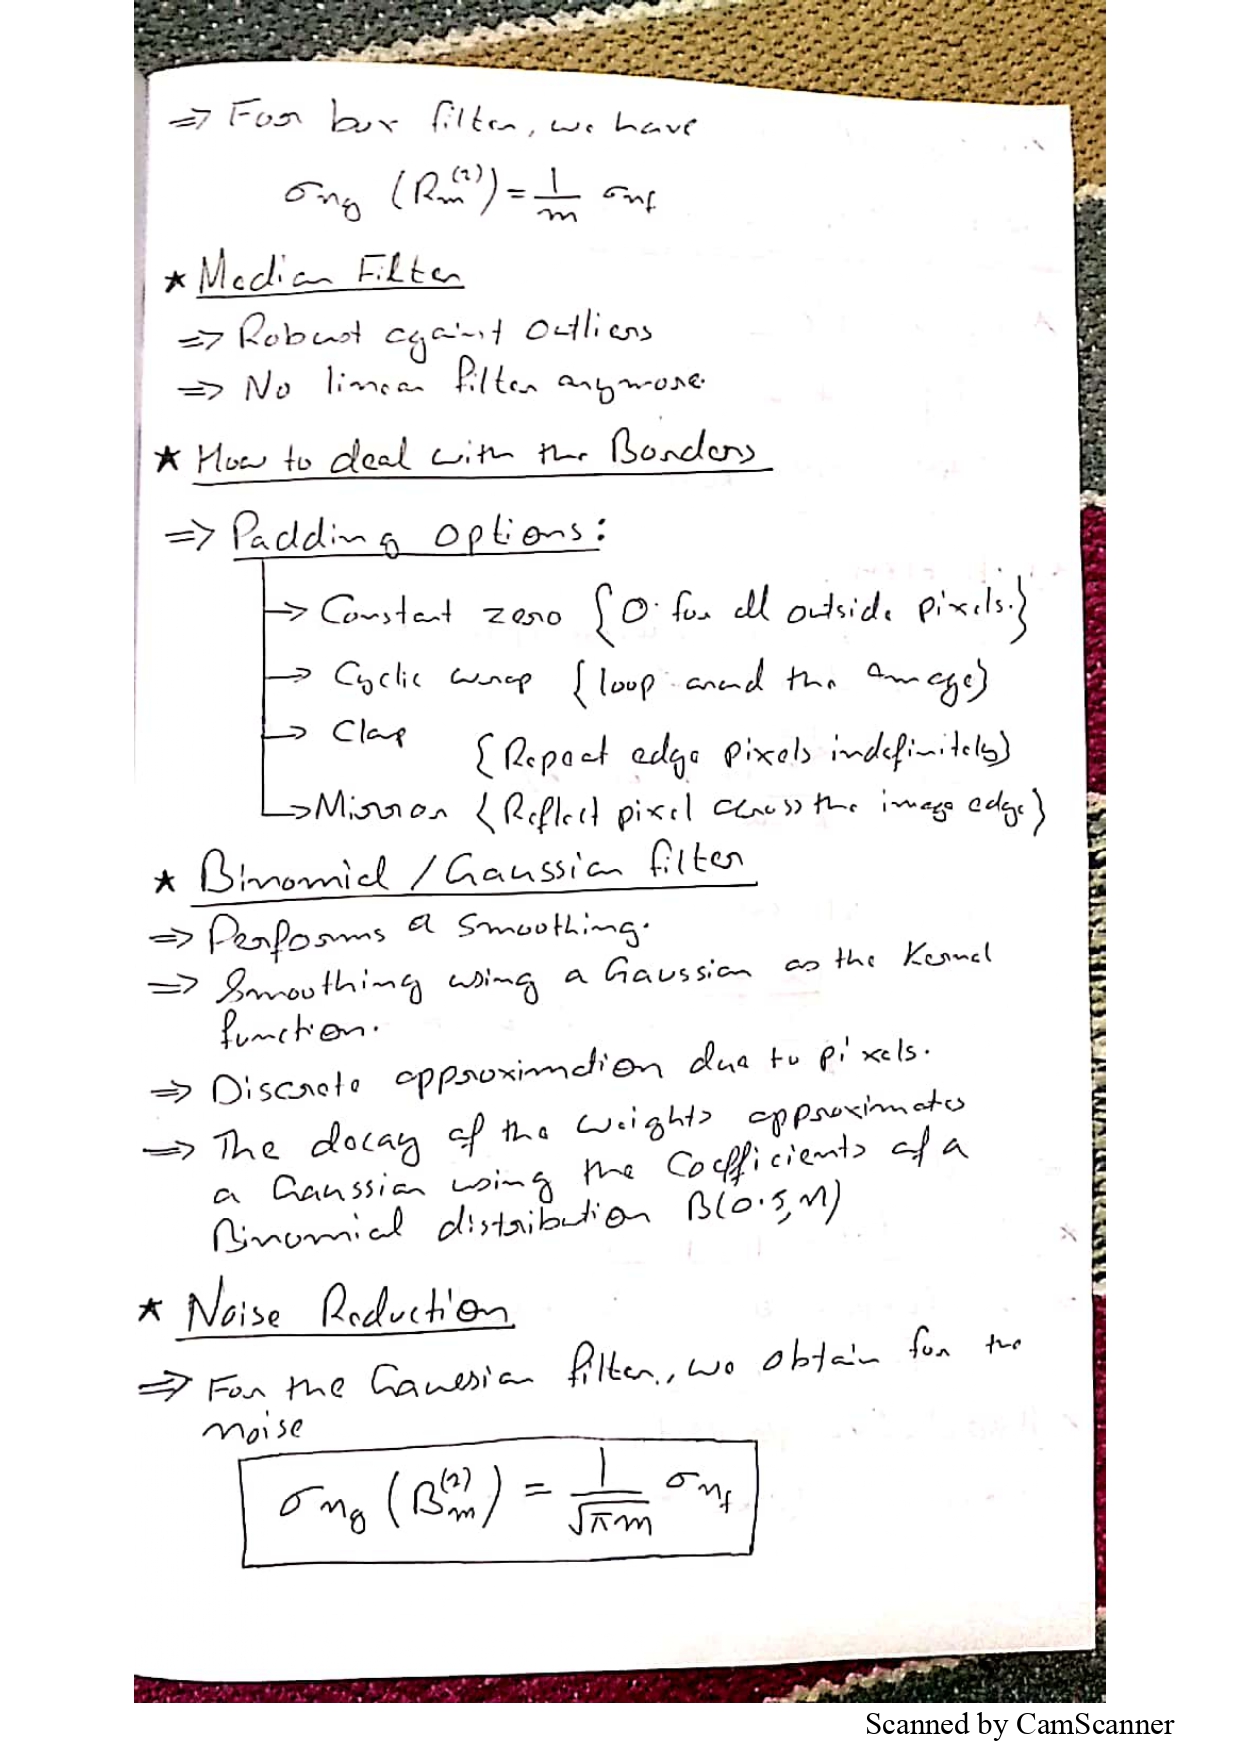 ⇒ For box filter, we have
σn_g (R_m^(2)) = 1/m σn_f
★ Median Filter
⇒ Robust against Outliers
⇒ No linear filter anymore.
★ How to deal with the Borders
⇒ Padding options:
→ Constant zero {0 for all outside pixels.}
→ Cyclic wrap {loop around the image}
→ Clap {Repeat edge pixels indefinitely}
→ Mirror {Reflect pixel across the image edge}
★ Binomial / Gaussian filter
⇒ Performs a smoothing.
⇒ Smoothing using a Gaussian as the Kernel
function.
⇒ Discrete approximation due to pixels.
⇒ The decay of the weights approximates
a Gaussian using the Coefficients of a
Binomial distribution B(0.5, n)
★ Noise Reduction
⇒ For the Gaussian filter, we obtain for the
noise
σn_g (B_m^(2)) = 1/√πm σn_f
Scanned by CamScanner